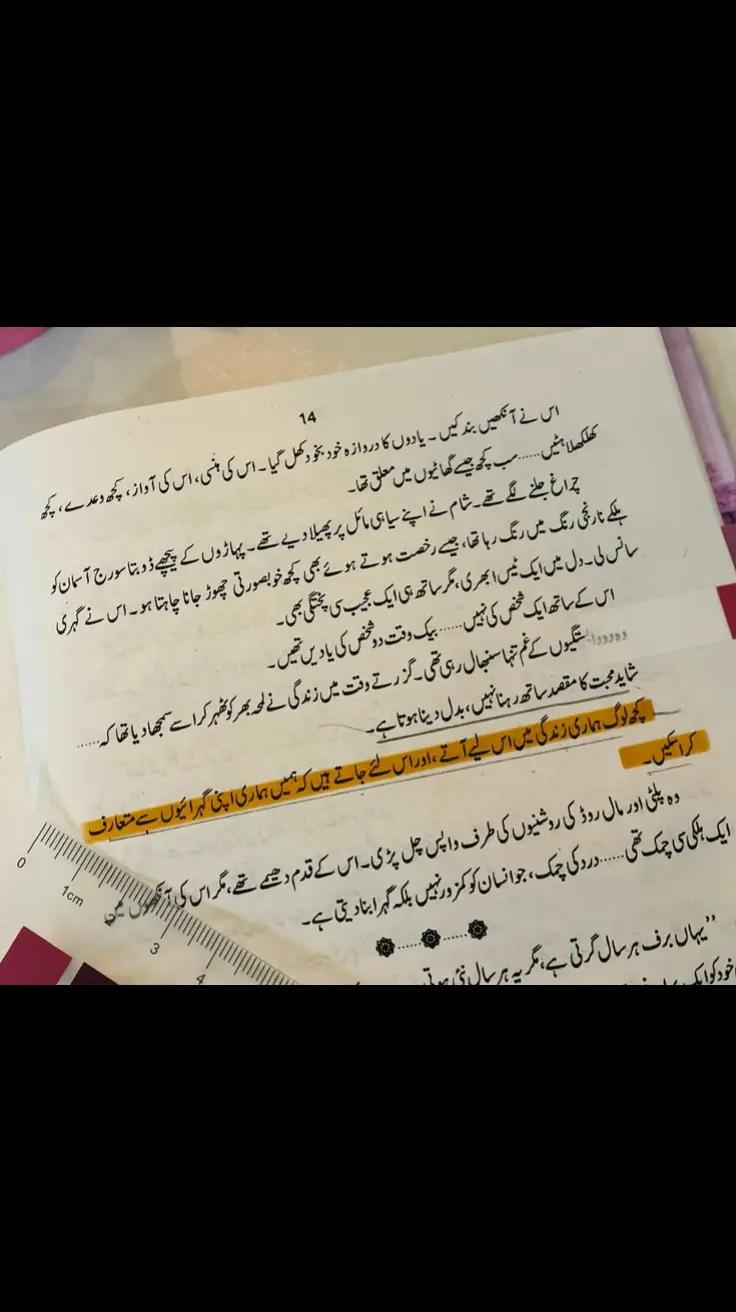 14
اس نے آنکھیں بند کیں ۔ یادوں کا دروازہ خود بخود کھل گیا ۔ اس کی ہنسی، اس کی آواز، کچھ وعدے، کچھ
کھلکھلاہٹیں......سب کچھ جیسے گھاٹیوں میں معلق تھا۔
چراغ جلنے لگے تھے۔ شام نے اپنے سیاہی مائل پر پھیلا دیے تھے۔ پہاڑوں کے پیچھے ڈوبتا سورج آسمان کو
ہلکے نارنجی رنگ میں رنگ رہا تھا، جیسے رخصت ہوتے ہوئے بھی کچھ خوبصورتی چھوڑ جانا چاہتا ہو۔ اس نے گہری
سانس لی۔ دل میں ایک ٹیس ابھری، مگر ساتھ ہی ایک عجیب سی پختگی بھی۔
اس کے ساتھ ایک شخص کی نہیں......بیک وقت دو شخص کی یادیں تھیں۔
ستگیوں کے غم تنہا سنبھال رہی تھی۔ گزرتے وقت میں زندگی نے لمحہ بھر کو ٹھہر کر اسے سمجھا دیا تھا کہ......
شاید محبت کا مقصد ساتھ رہنا نہیں، بدل دینا ہوتا ہے۔
کچھ لوگ ہماری زندگی میں اس لیے آتے ،اور اس لئے جاتے ہیں کہ ہمیں ہماری اپنی گہرائیوں سے متعارف
کرا سکیں۔
وہ پلٹی اور مال روڈ کی روشنیوں کی طرف واپس چل پڑی۔ اس کے قدم دھیمے تھے، مگر اس کی آنکھوں میں
ایک ہلکی سی چمک تھی......درد کی چمک، جو انسان کو کمزور نہیں بلکہ گہرا بنا دیتی ہے۔
"یہاں برف ہر سال گرتی ہے، مگر یہ ہر سال نئی ہوتی
خود کو ایک
0
1cm
3
4